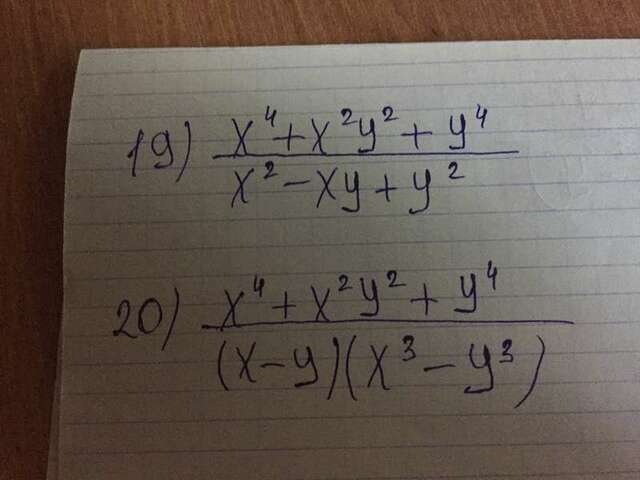 19) x⁴ + x²y² + y⁴
x² - xy + y²
20) x⁴ + x²y² + y⁴
(x - y)(x³ - y³)